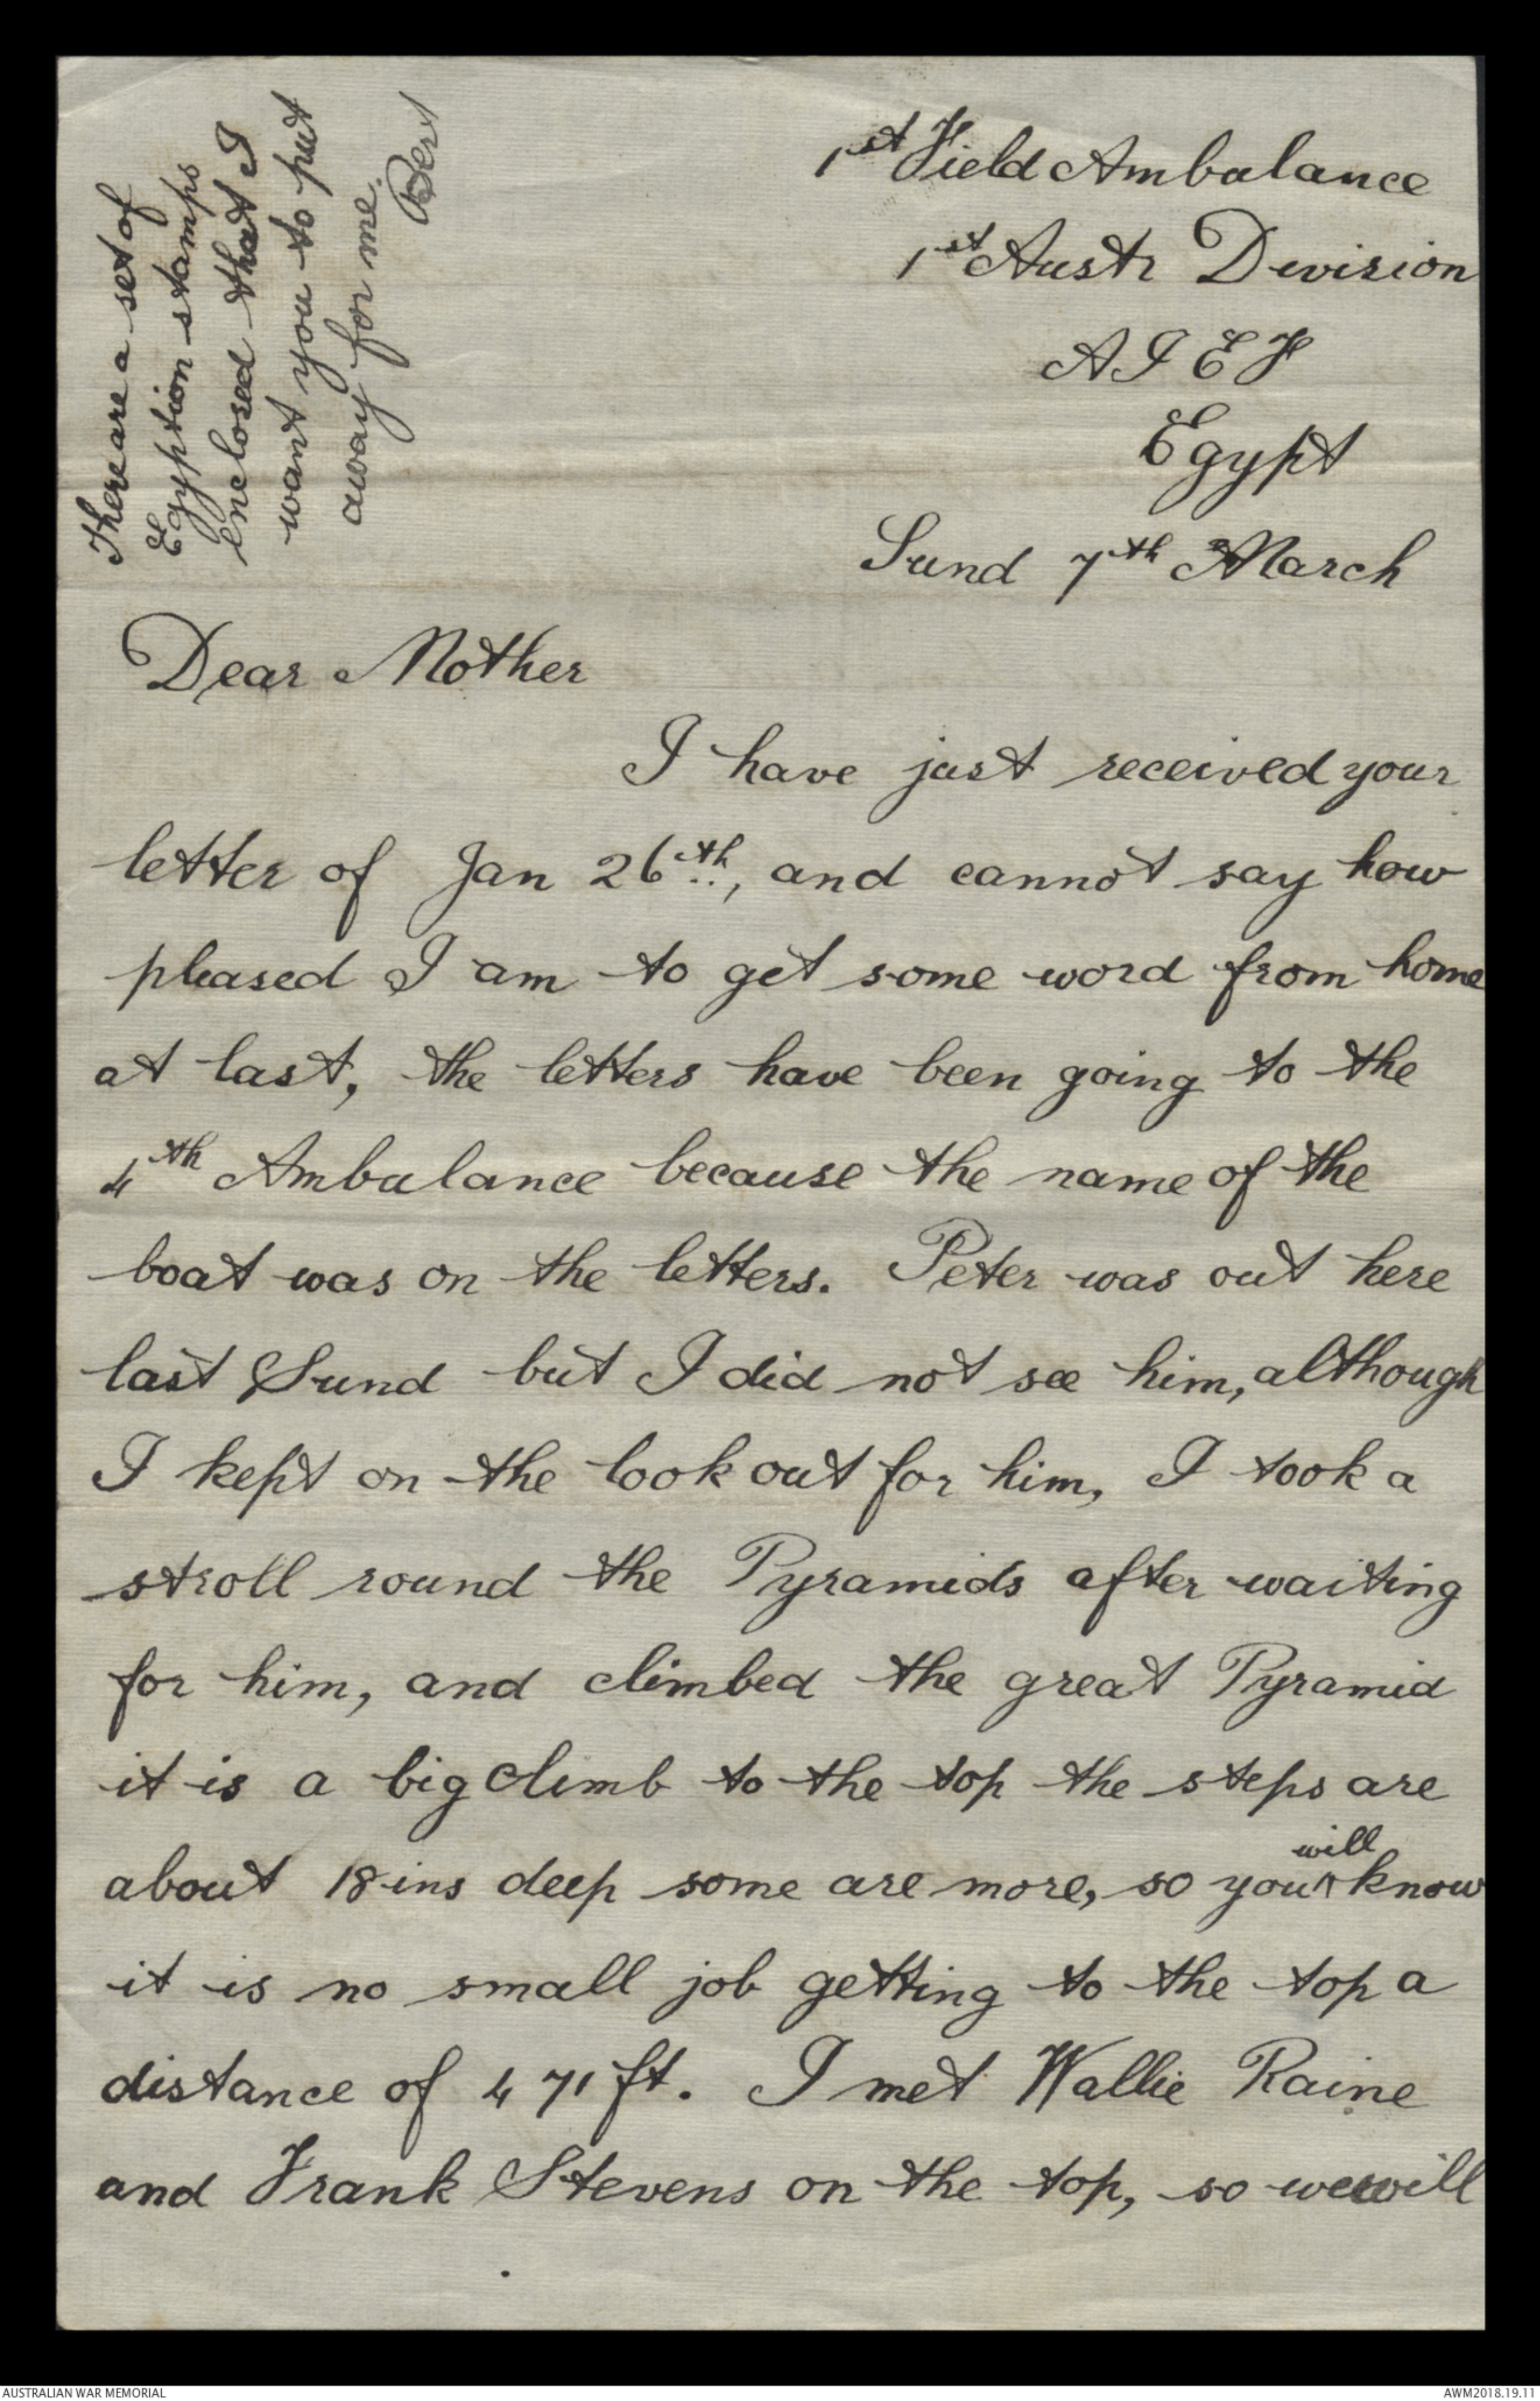 There are a set of
Egyption stamps
enclosed that I
want you to put
away for me.
Bert
1st Field Ambulance
1st Austr Division
A I E F
Egypt
Sund 7th March
Dear Mother
I have just received your
letter of Jan 26th, and cannot say how
pleased I am to get some word from home
at last, the letters have been going to the
4th Ambulance because the name of the
boat was on the letters. Peter was out here
last Sund but I did not see him, although
I kept on the look out for him, I took a
stroll round the Pyramids after waiting
for him, and climbed the great Pyramid
it is a big climb to the top the steps are
about 18 ins deep some are more, so you will know
it is no small job getting to the top a
distance of 471 ft. I met Wallie Raine
and Frank Stevens on the top, so we will
AUSTRALIAN WAR MEMORIAL
AWM2018.19.11